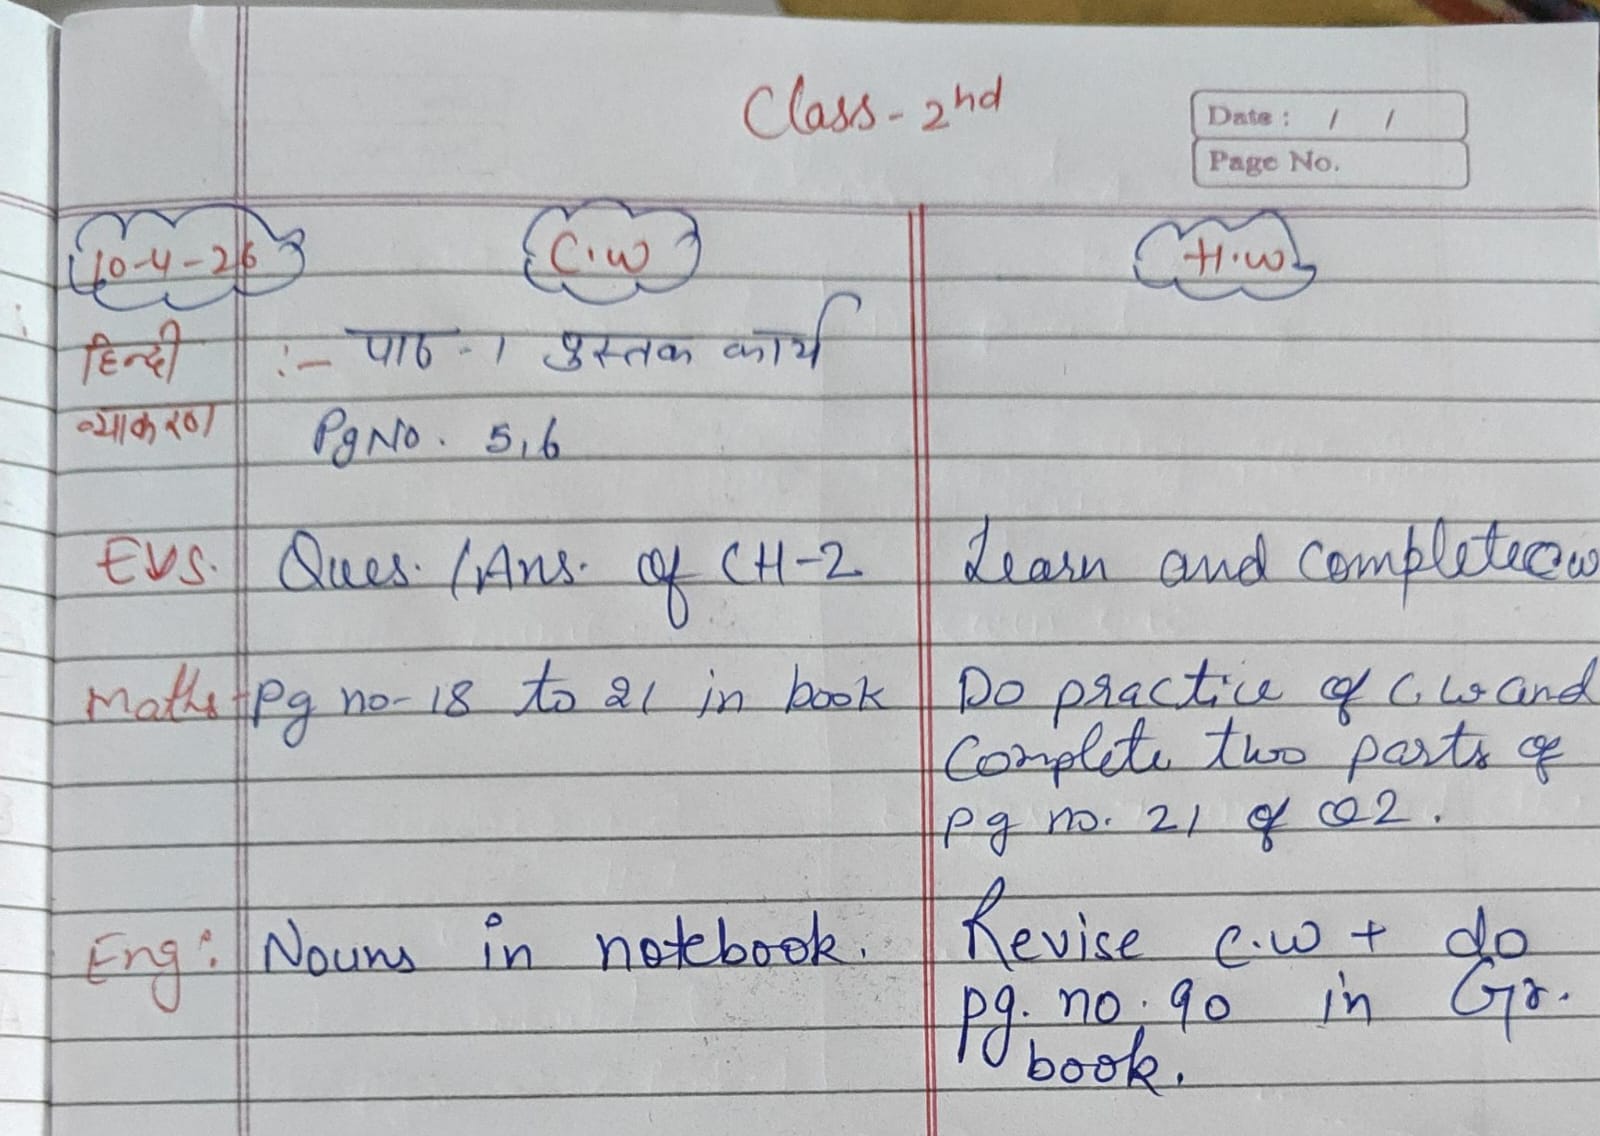 Class - 2nd
Date : / /
Page No.
10-4-26 C.W H.W
हिन्दी :- पाठ - 1 पुस्तक कार्य
व्याकरण Pg No. 5,6
EVS. Ques. / Ans. of CH-2 Learn and complete cw
Maths - Pg no- 18 to 21 in book Do practice of C.W and
Complete two parts of
pg no. 21 of Q2.
Eng: Nouns in notebook. Revise c.w + do
pg. no. 90 in Gr.
book.